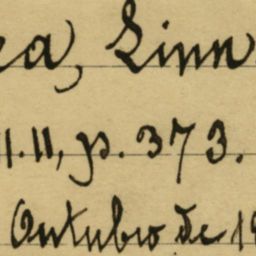 ea, Linn
11.11, p. 373.
Outubro de 19